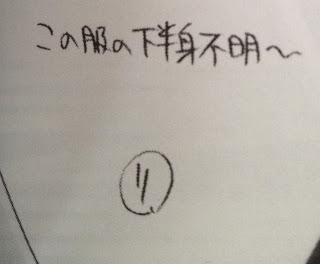 この服の下半身不明〜
リ